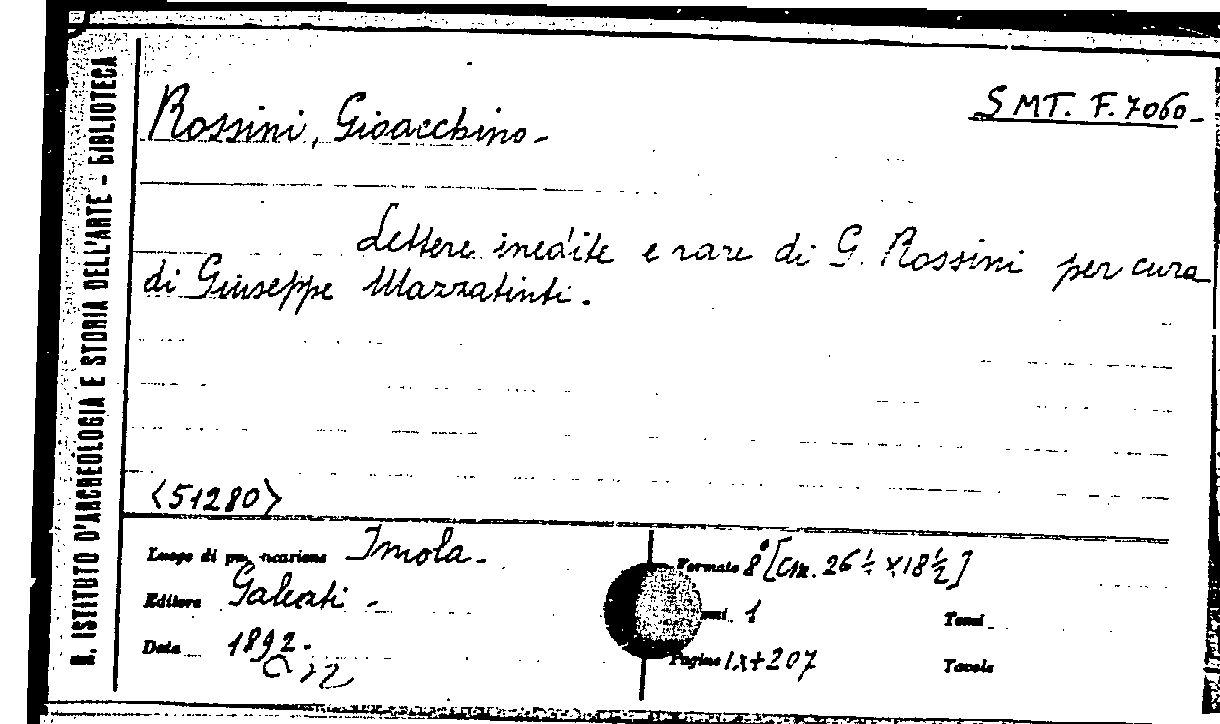 R. ISTITUTO D'ARCHEOLOGIA E STORIA DELL'ARTE - BIBLIOTECA
Rossini, Gioacchino -
SMT. F. 7060 -
Lettere inedite e rare di G. Rossini per cura
di Giuseppe Mazzatinti.
<51280>
Luogo di pubblicazione Imola -
Formato 8° [cm. 26 ½ x 18 ½]
Editore Galeati -
1
Tomi
Data 1892.
Pagine IX+207
Tavole